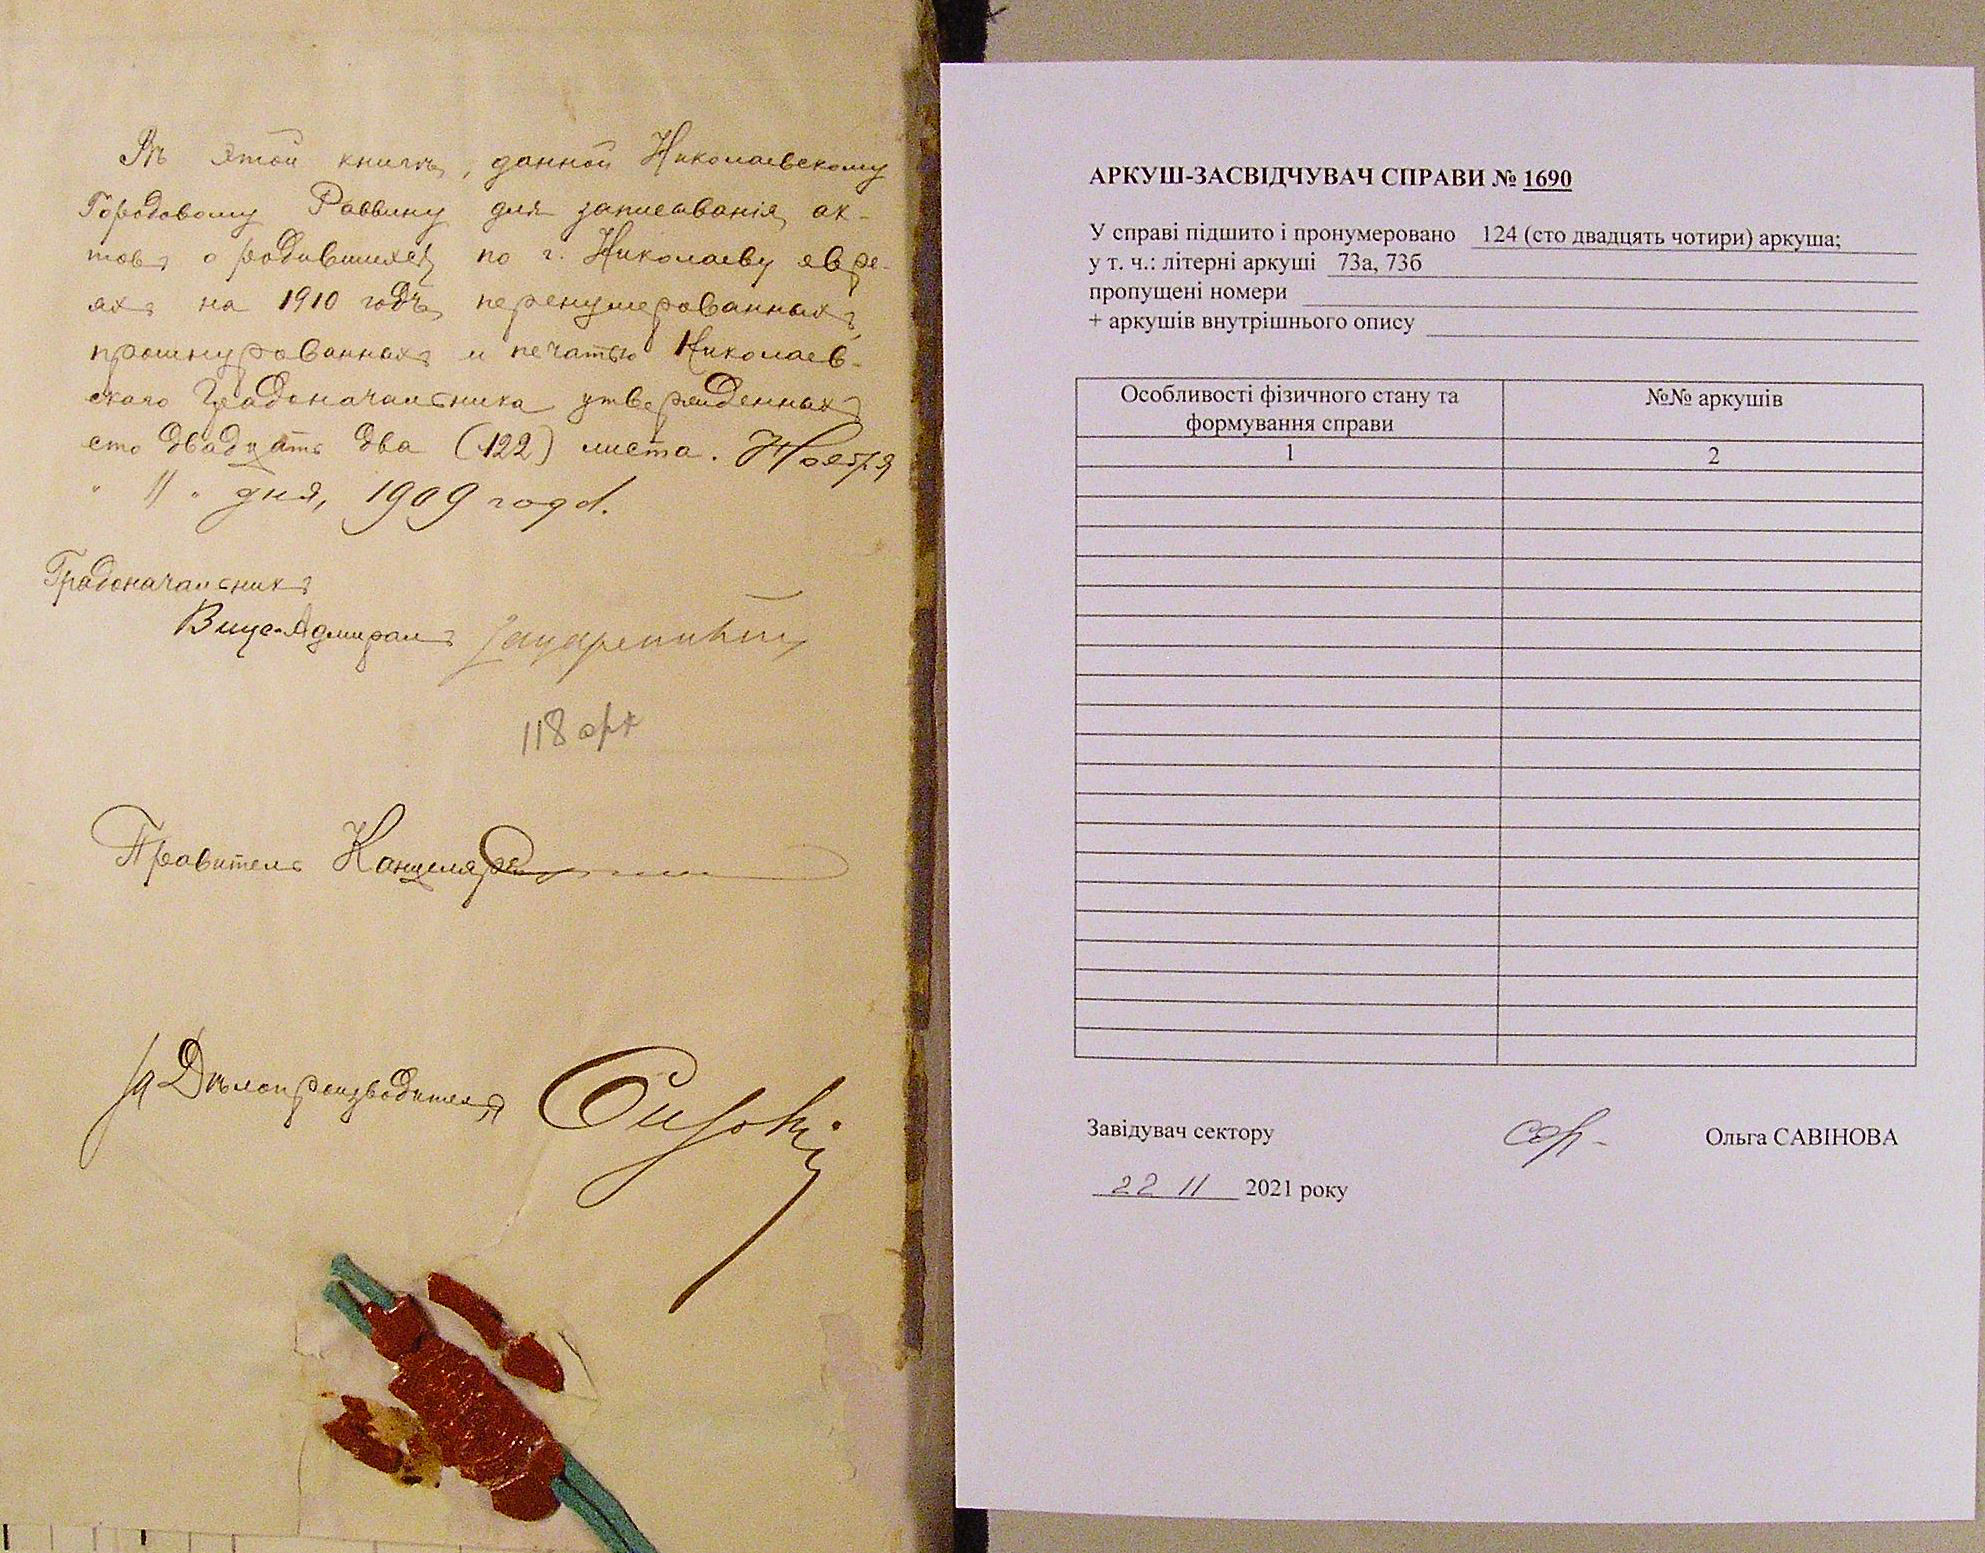 Въ этой книгѣ, данной Николаевскому
Городовому Раввину для записыванія ак-
товъ о родившихся по г. Николаеву евре-
яхъ на 1910 годъ, перенумерованныхъ,
прошнурованныхъ и печатью Николаев-
скаго Градоначальника утвержденныхъ
сто двадцать два (122) листа. Ноября
" 11 " дня, 1909 года.
Градоначальникъ
Вице-Адмиралъ
118 арк
Правитель Канцеляріи
За Дѣлопроизводителя
АРКУШ-ЗАСВІДЧУВАЧ СПРАВИ № 1690
У справі підшито і пронумеровано 124 (сто двадцять чотири) аркуша;
у т. ч.: літерні аркуші 73а, 73б
пропущені номери
+ аркушів внутрішнього опису
Особливості фізичного стану та
формування справи
№№ аркушів
1
2
Завідувач сектору
Ольга САВІНОВА
22 11 2021 року